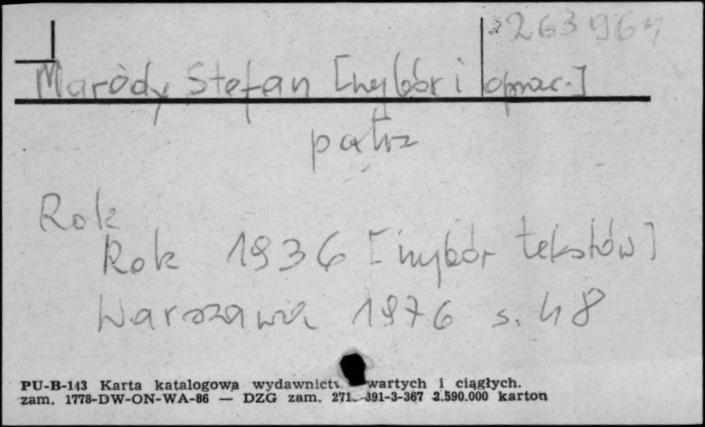 263964
Maródy Stefan [wybór i oprac.]
patrz
Rok
Rok 1936 [wybór tekstów]
Warszawa 1976 s. 48
PU-B-143 Karta katalogowa wydawnictw zwartych i ciągłych.
zam. 1778-DW-ON-WA-86 — DZG zam. 271. 391-3-367 2.590.000 karton